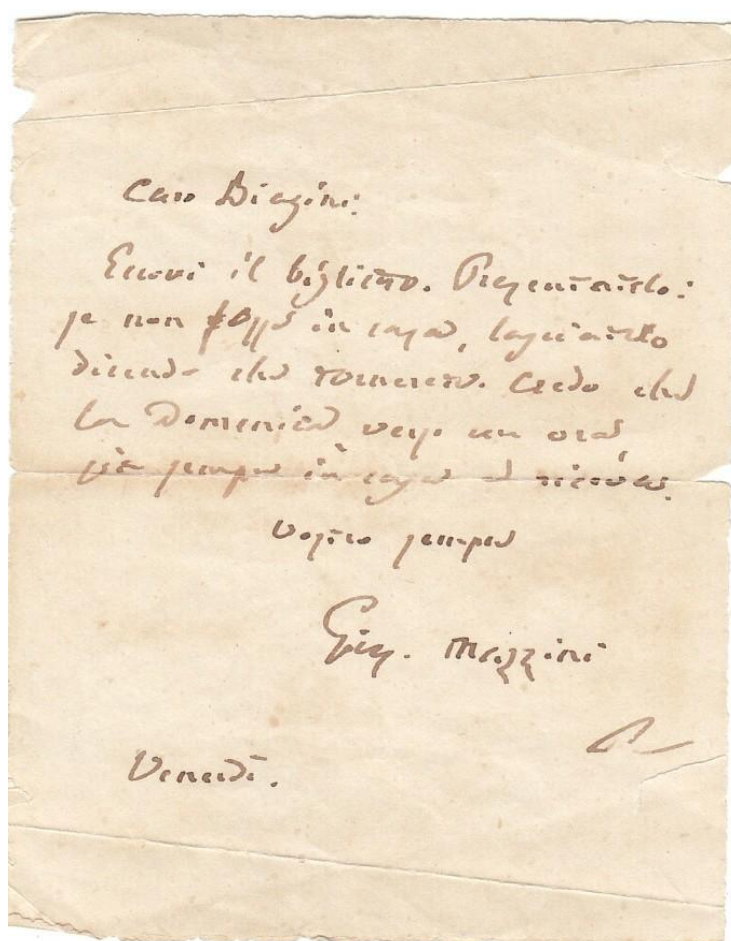 Caro Biagini:
Eccovi il biglietto. Presentatelo:
se non fosse in casa, lasciatelo
dicendo che tornerete. Credo che
la Domenica verso un ora,
sia sempre in casa a ricever.
Vostro sempre
Gius. Mazzini
Venerdì.